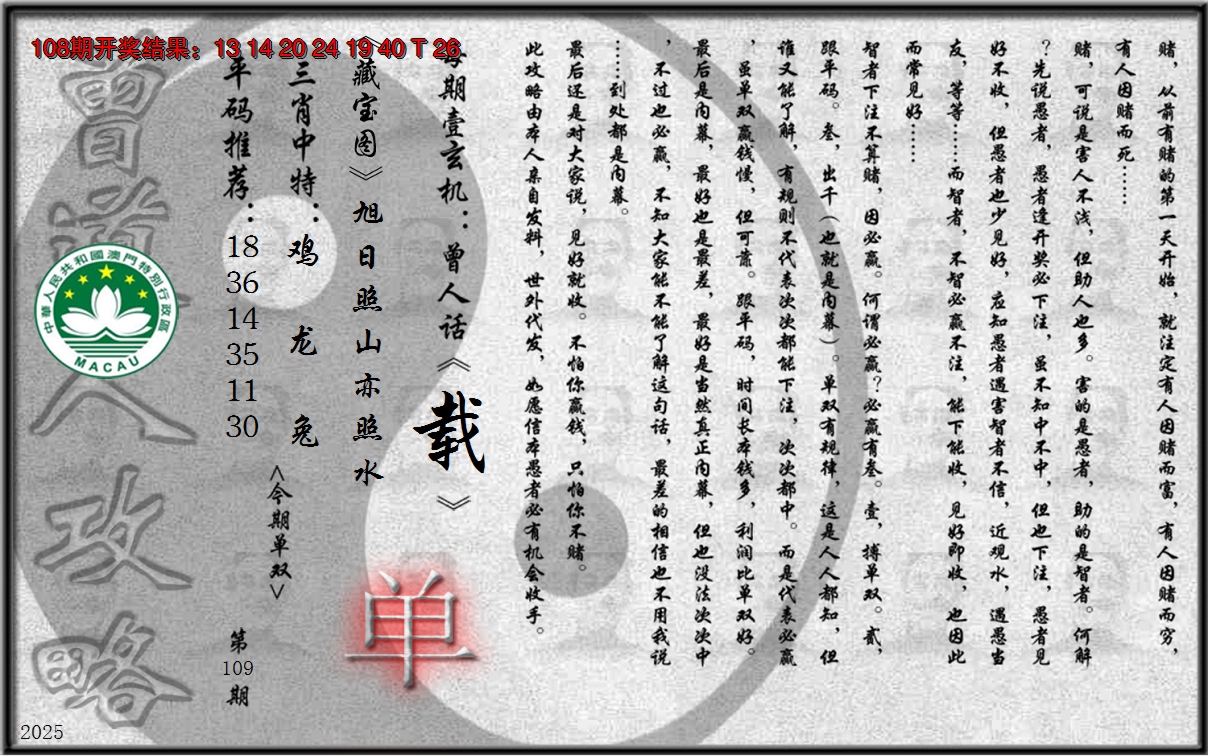 108期开奖结果：13 14 20 24 19 40 T 26
赌，从前有赌的第一天开始，就注定有人因赌而富，有人因赌而穷，
有人因赌而死……
赌，可说是害人不浅，但助人也多。害的是愚者，助的是智者。何解
？先说愚者，愚者逢开奖必下注，虽不知中不中，但也下注，愚者见
好不收，但愚者也少见好，应知愚者遇害智者不信，近观水，遇愚当
友，等等……而智者，不智必赢不注，能下能收，见好即收，也因此
而常见好……
智者下注不算赌，因必赢。何谓必赢？必赢有叁。壹，搏单双。贰，
跟平码。叁，出千（也就是内幕）。单双有规律，这是人人都知，但
谁又能了解，有规则不代表次次都能下注，次次都中。而是代表必赢
，虽单双赢钱慢，但可靠。跟平码，时间长本钱多，利润比单双好。
最后是内幕，最好也是最差，最好是当然真正内幕，但也没法次次中
，不过也必赢，不知大家能不能了解这句话，最差的相信也不用我说
……到处都是内幕。
最后还是对大家说，见好就收。不怕你赢钱，只怕你不赌。
此攻略由本人亲自发料，世外代发，如愿信本愚者必有机会收手。
每期壹玄机：曾人话《载》
《藏宝图》旭日照山亦照水
三肖中特：鸡 龙 兔
平码推荐：18 36 14 35 11 30
<今期单双>
单
第109期
曾道人攻略
中華人民共和國澳門特別行政區
MACAU
2025